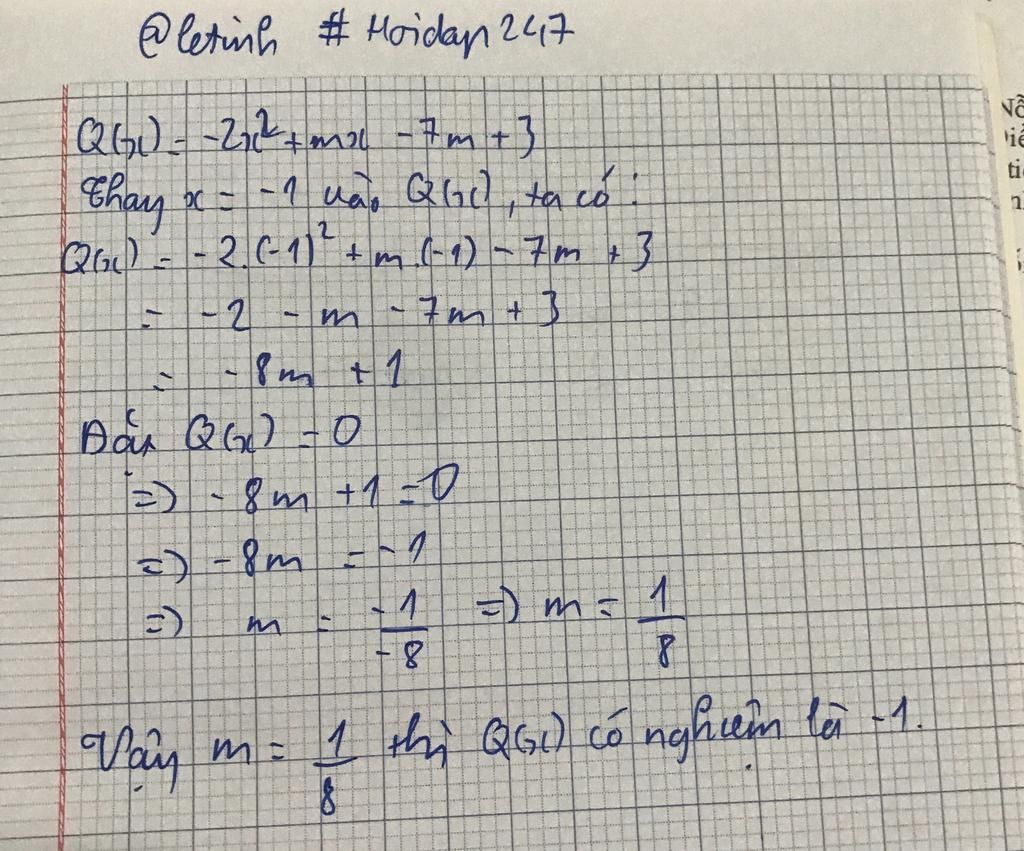 @letinh # Hoidap247
Q(x) = -2x² + mx - 7m + 3
Thay x = -1 vào Q(x), ta có:
Q(x) = -2.(-1)² + m.(-1) - 7m + 3
= -2 - m - 7m + 3
= -8m + 1
Đặt Q(x) = 0
=> -8m + 1 = 0
=> -8m = -1
=> m = -1/-8 => m = 1/8
Vậy m = 1/8 thì Q(x) có nghiệm là -1.